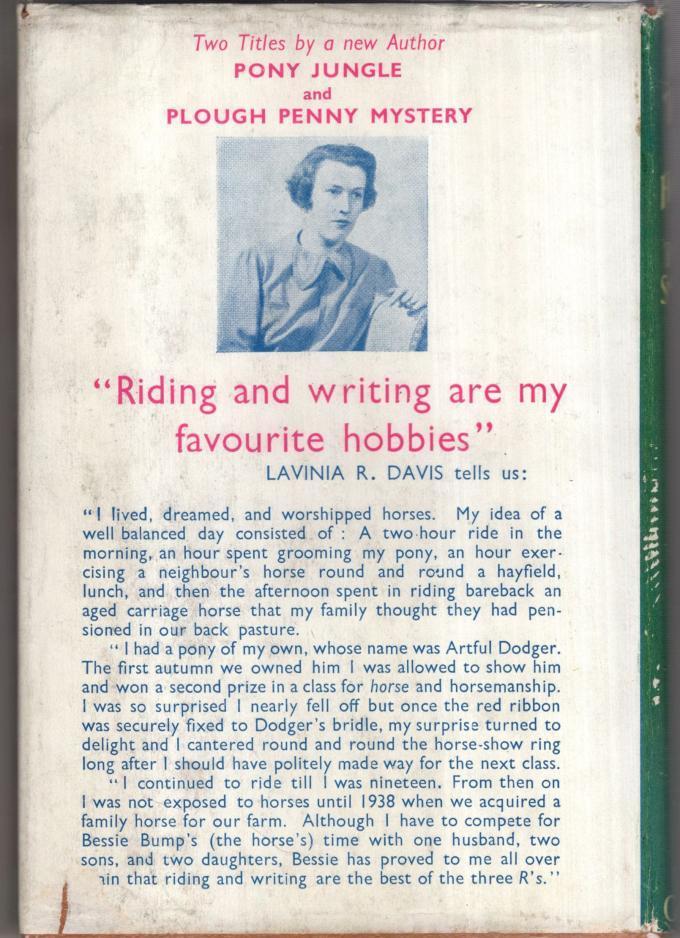 Two Titles by a new Author
PONY JUNGLE
and
PLOUGH PENNY MYSTERY
“Riding and writing are my
favourite hobbies”
LAVINIA R. DAVIS tells us:
“I lived, dreamed, and worshipped horses. My idea of a
well balanced day consisted of : A two-hour ride in the
morning, an hour spent grooming my pony, an hour exer-
cising a neighbour's horse round and round a hayfield,
lunch, and then the afternoon spent in riding bareback an
aged carriage horse that my family thought they had pen-
sioned in our back pasture.
“I had a pony of my own, whose name was Artful Dodger.
The first autumn we owned him I was allowed to show him
and won a second prize in a class for horse and horsemanship.
I was so surprised I nearly fell off but once the red ribbon
was securely fixed to Dodger's bridle, my surprise turned to
delight and I cantered round and round the horse-show ring
long after I should have politely made way for the next class.
“I continued to ride till I was nineteen. From then on
I was not exposed to horses until 1938 when we acquired a
family horse for our farm. Although I have to compete for
Bessie Bump's (the horse's) time with one husband, two
sons, and two daughters, Bessie has proved to me all over
that riding and writing are the best of the three R's.”